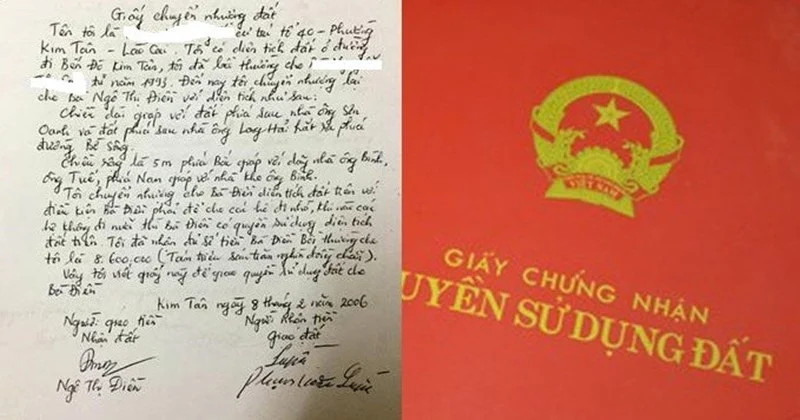 Giấy chuyển nhượng đất
Tên tôi là cư trú tổ 40 - Phường
Kim Tân - Lào Cai. Tôi có diện tích đất ở đường
đi Bến Đò Kim Tân, tôi đã bồi thường cho
từ năm 1993. Đến nay tôi chuyển nhượng lại
cho Bà Ngô Thị Điền với diện tích như sau:
Chiều dài giáp với đất phía sau nhà ông Sơn
Oanh và đất phía sau nhà ông Long Hải hất ra phía
đường Bờ Sông.
Chiều rộng là 5m phía Bắc giáp với dãy nhà ông Bình,
ông Tuế, phía Nam giáp với nhà kho ông Bình.
Tôi chuyển nhượng cho Bà Điền diện tích đất trên với
điều kiện Bà Điền phải để cho các hộ đi nhờ, khi nào các
hộ không đi nữa thì Bà Điền có quyền sử dụng diện tích
đất trên. Tôi đã nhận đủ số tiền Bà Điền Bồi thường cho
tôi là 8.600,000 (Tám triệu sáu trăm nghìn đồng chẵn).
Vậy tôi viết giấy này để giao quyền sử dụng đất cho
Bà Điền
Kim Tân ngày 8 tháng 2 năm 2006
Người giao tiền Người nhận tiền
Nhận đất Giao đất
Ngô Thị Điền
VIỆT NAM
GIẤY CHỨNG NHẬN
UYỀN SỬ DỤNG ĐẤT